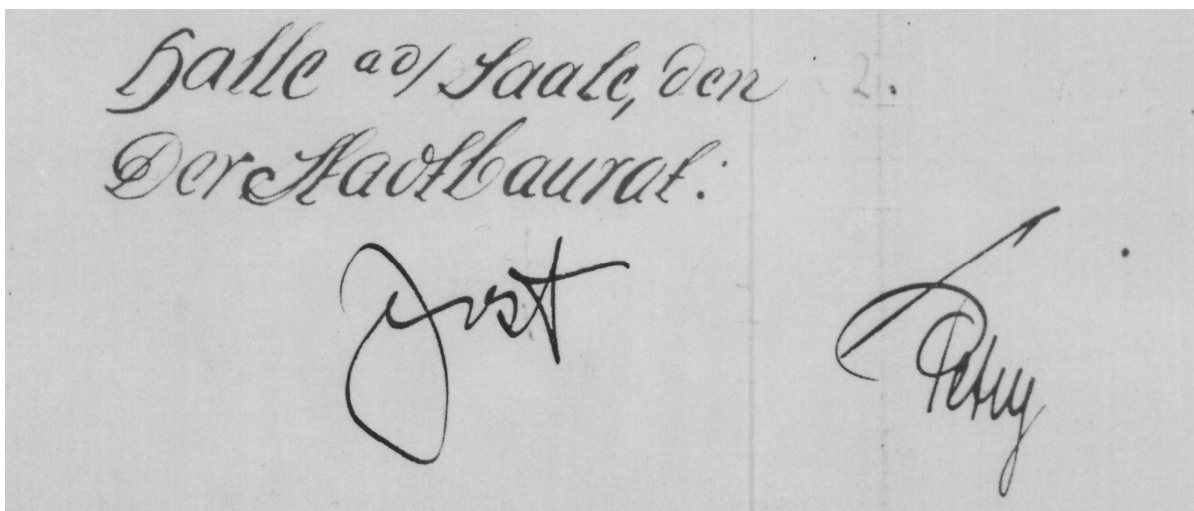 Halle a∂/ Saale, den 2.
Der Stadtbaurat:
Jost
Petry